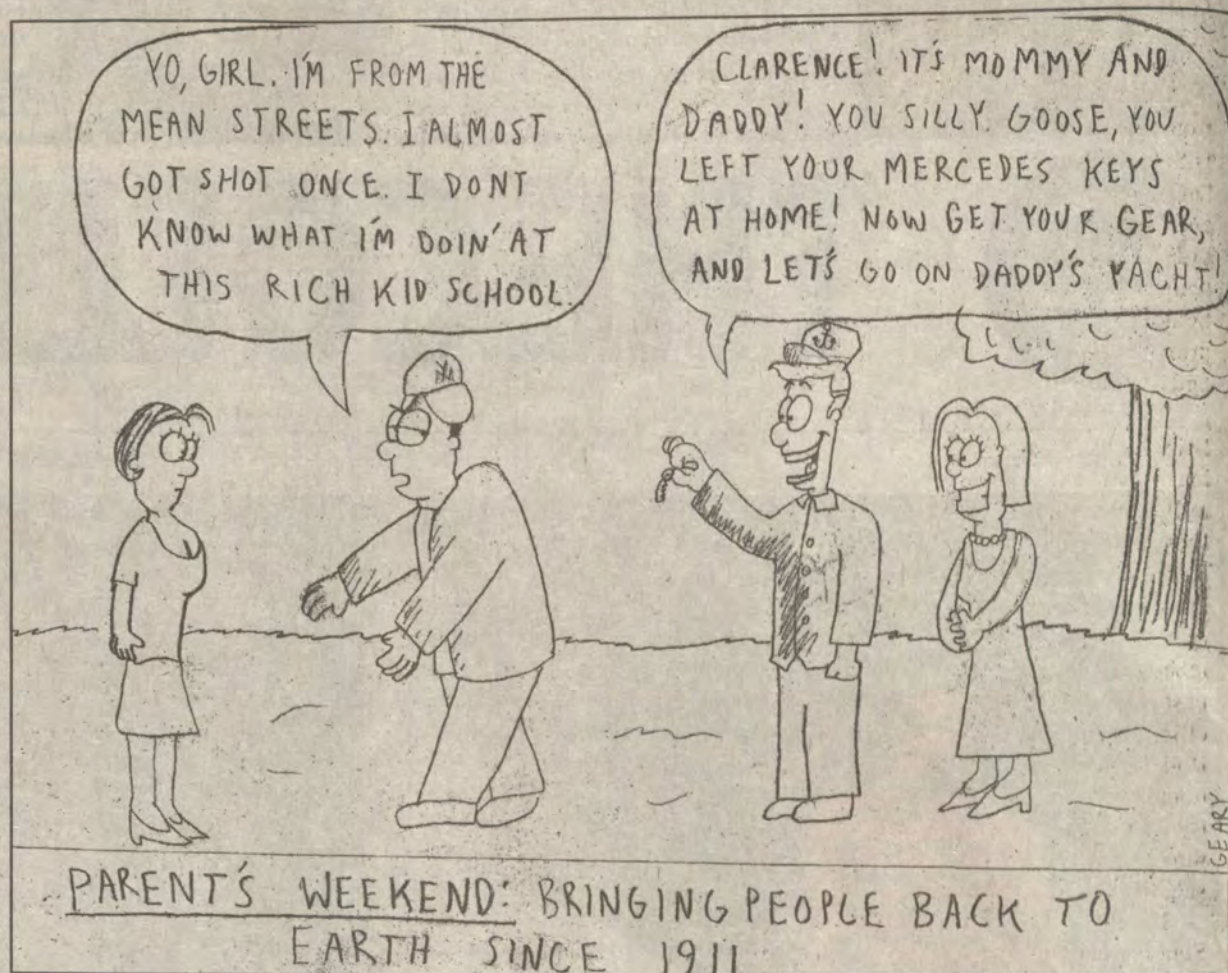 YO, GIRL. I'M FROM THE
MEAN STREETS. I ALMOST
GOT SHOT ONCE. I DONT
KNOW WHAT I'M DOIN' AT
THIS RICH KID SCHOOL.
CLARENCE! IT'S MOMMY AND
DADDY! YOU SILLY GOOSE, YOU
LEFT YOUR MERCEDES KEYS
AT HOME! NOW GET YOUR GEAR,
AND LET'S GO ON DADDY'S YACHT!
NY
GEARY
PARENT'S WEEKEND: BRINGING PEOPLE BACK TO
EARTH SINCE 1911